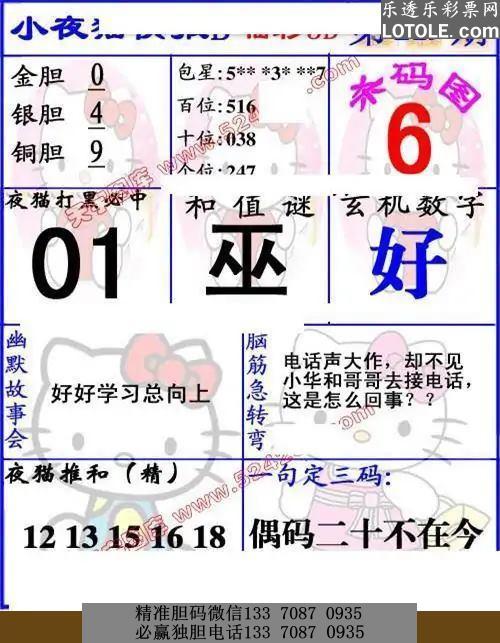 乐透乐彩票网
LOTOLE.COM
小夜猫
第
期
金胆 0
银胆 4
铜胆 9
包星:5** *3* **7
百位:516
十位:038
个位:247
杀码图
6
夜猫打黑必中
01
和值谜
巫
玄机数字
好
幽默故事会
好好学习总向上
脑筋急转弯
电话声大作，却不见
小华和哥哥去接电话，
这是怎么回事？？
夜猫推和（精）
12 13 15 16 18
一句定三码:
偶码二十不在今
精准胆码微信133 7087 0935
必赢独胆电话133 7087 0935